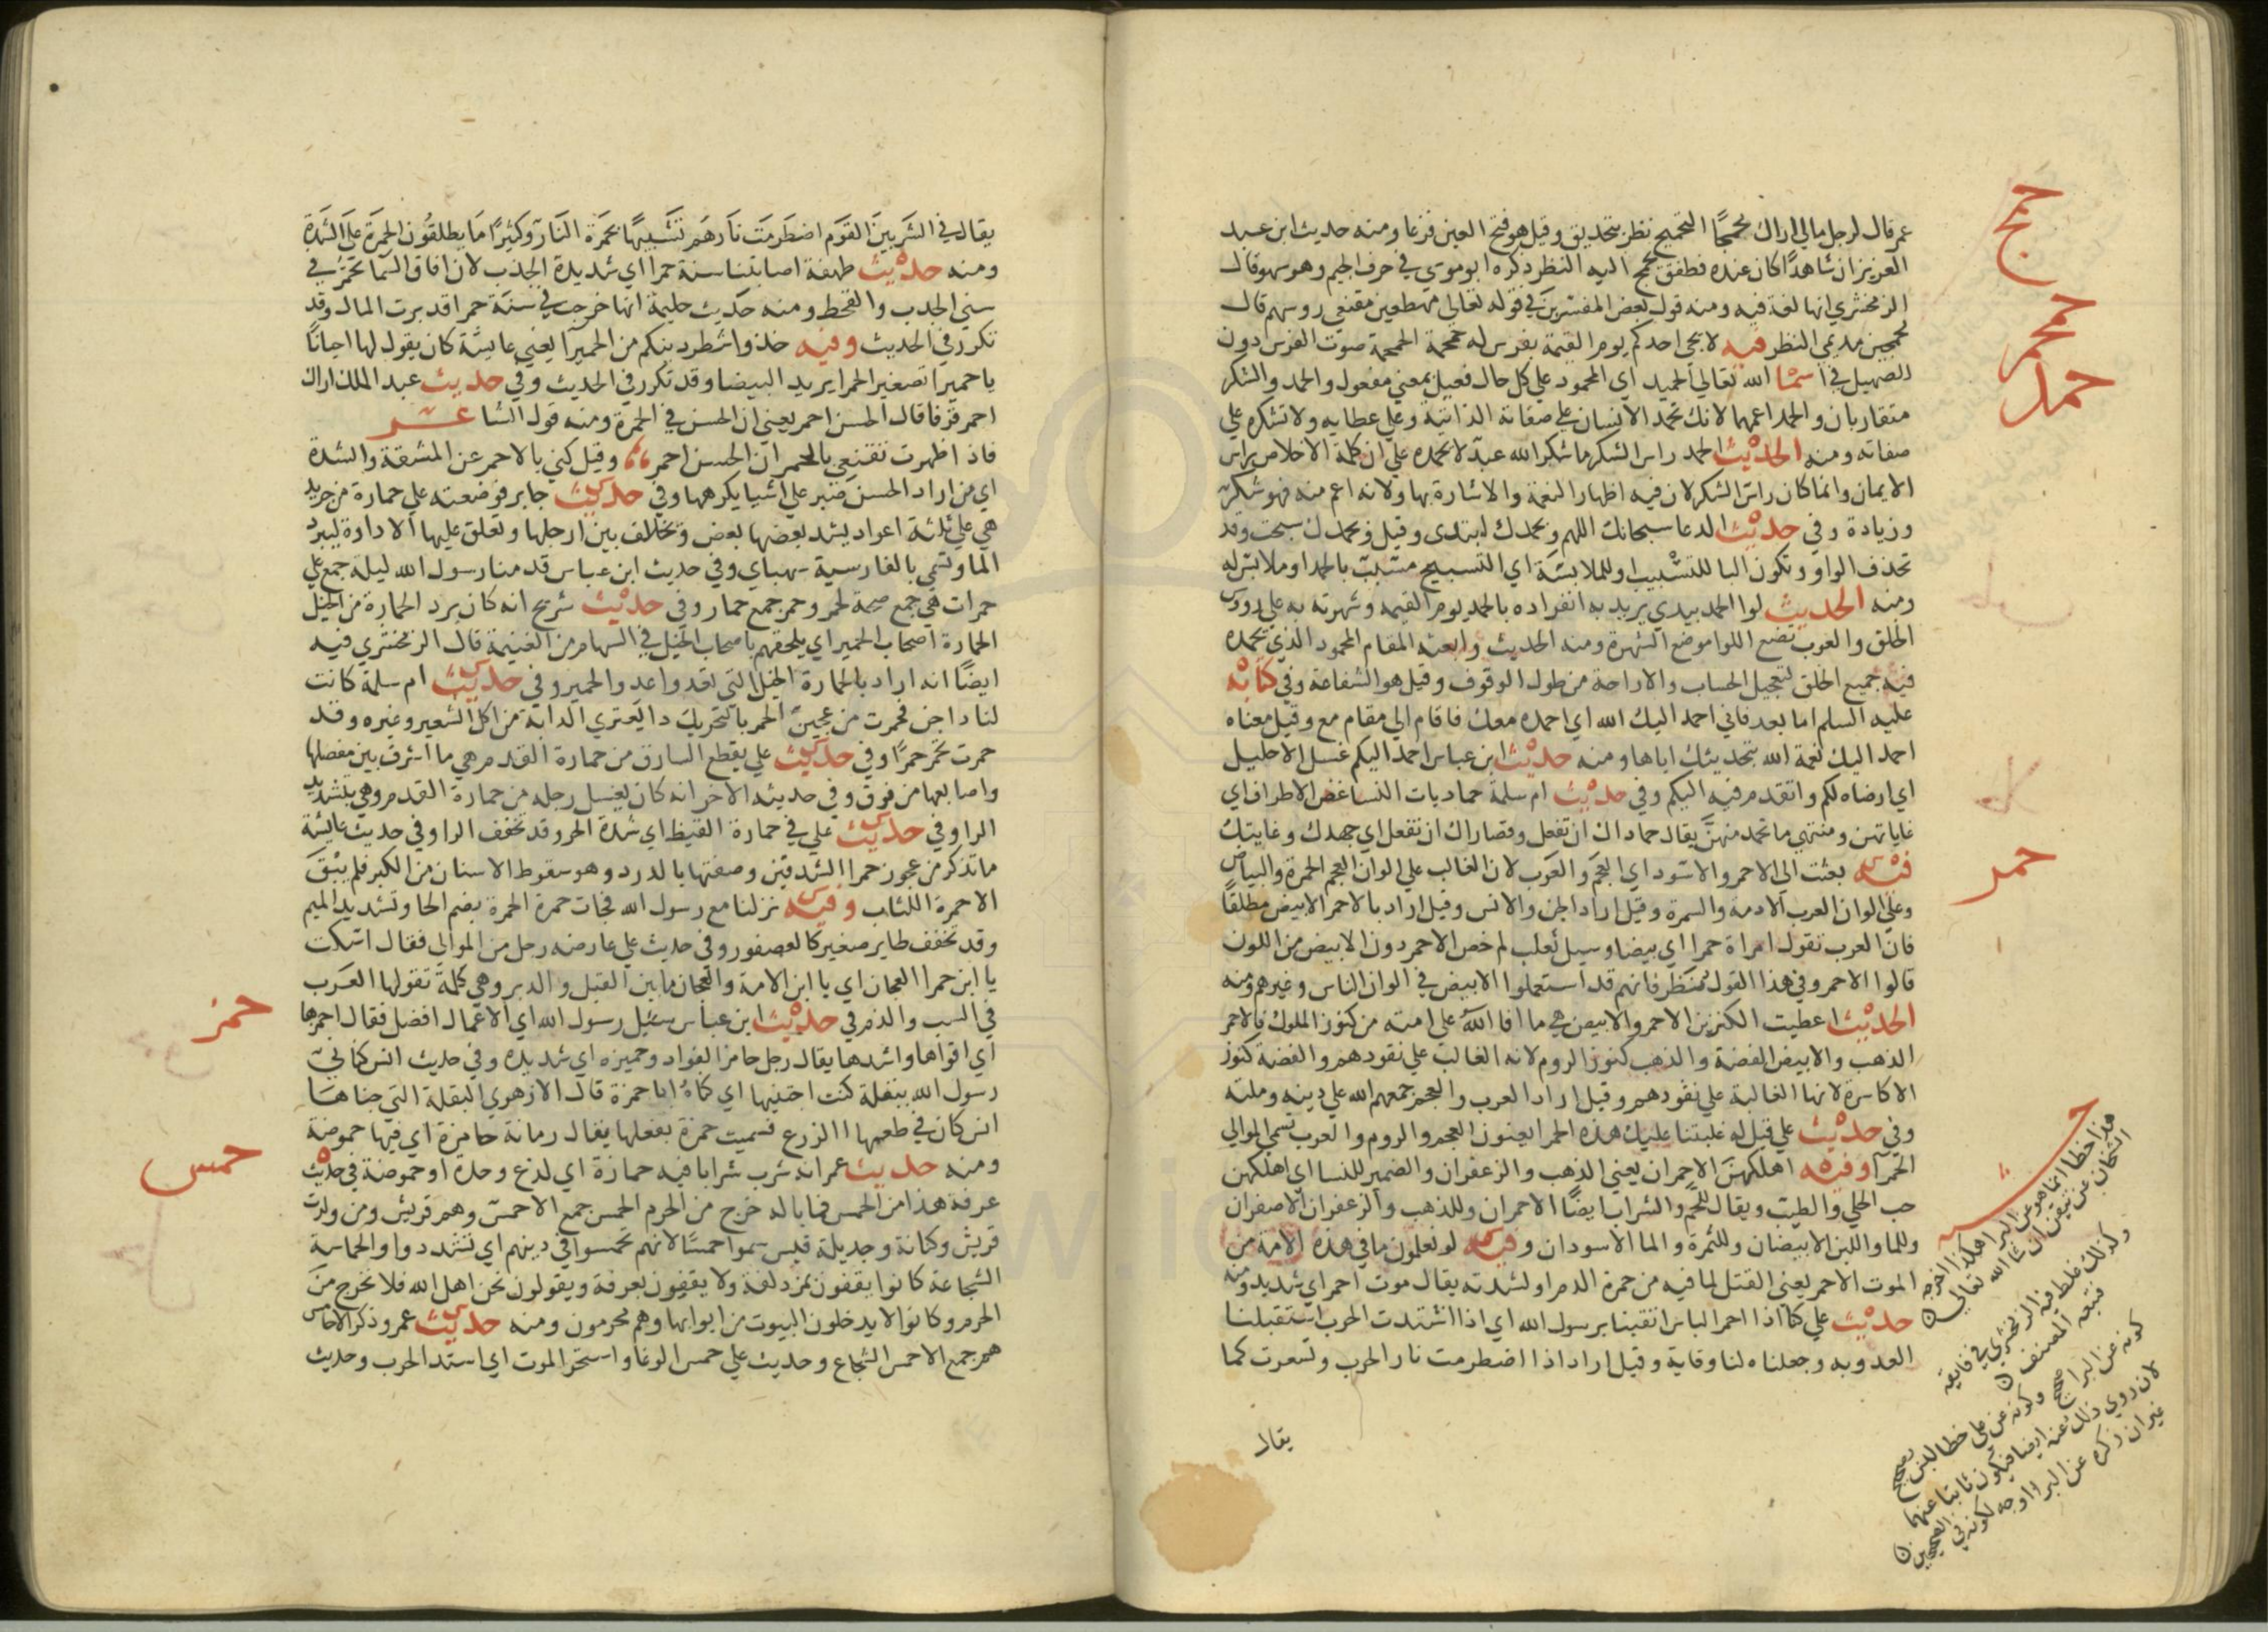 حمج
حمحم
حمد
حمر
عمر قال لرجل مالي اراك محمجًا التحميج نظر بتحديق وقيل هو فتح العين فزعا ومنه حديث ابن عبد
العزيز ان شاهدًا كان عنده فطفق يحمج اليه النظر ذكره ابو موسي في حرف الجيم وهو سهو وقال
الزمخشري انها لغة فيه ومنه قول بعض المفسرين في قوله تعالي مهطعين مقنعي روسهم قال
محمجين مديمي النظر فيه لا يجي احدكم يوم القيمة بفرس له حمحمة الحمحمة صوت الفرس دون
الصهيل في اسما الله تعالي الحميد اي المحمود علي كل حال فعيل بمعني مفعول والحمد والشكر
متقاربان والحمد اعمهما لانك تحمد الانسان علي صفاته الذاتية وعلي عطايه ولا تشكره علي
صفاته ومنه الحديث الحمد راس الشكر ما شكر الله عبد لا يحمده علي ان كلمة الاخلاص راس
الايمان وانما كان راس الشكر لان فيه اظهار النعمة والاشارة بها ولانه اعم منه فهو شكر
وزيادة وفي حديث الدعا سبحانك اللهم وبحمدك ابتدي وقيل وبحمدك سبحت وقد
تحذف الواو وتكون البا للتسبيب او للملابسة اي التسبيح مسبب بالحمد او ملابس له
ومنه الحديث لوا الحمد بيدي يريد به انفراده بالحمد يوم القيمه وشهرته به علي روس
الخلق والعرب تضع اللوا موضع الشهرة ومنه الحديث وابعثه المقام المحمود الذي يحمده
فيه جميع الخلق لتعجيل الحساب والاراحة من طول الوقوف وقيل هو الشفاعة وفي كتابه
عليه السلم اما بعد فاني احمد اليك الله اي احمده معك فاقام الي مقام مع وقيل معناه
احمد اليك نعمة الله بتحديثك اياها ومنه حديث ابن عباس احمد اليكم غسل الاحليل
اي ارضاه لكم واتقدم فيه اليكم وفي حديث ام سلمة حماديات النسا غض الاطراف اي
غاياتهن ومنتهي ما تحمد منهن يقال حماداك ان تفعل وقصاراك ان تفعل اي جهدك وغايتك
فيه بعثت الي الاحمر والاسود اي العجم والعرب لان الغالب علي الوان العجم الحمرة والبياض
وعلي الوان العرب الادمة والسمرة وقيل اراد الجن والانس وقيل اراد بالاحمر الابيض مطلقًا
فان العرب تقول امراة حمرا اي بيضا وسيل ثعلب لم خص الاحمر دون الابيض من اللون
قالوا الاحمر وفي هذا القول نظر فانهم قد استعملوا الابيض في الوان الناس وغيرهم ومنه
الحديث اعطيت الكنزين الاحمر والابيض هي ما افا الله علي امته من كنوز الملوك فالاحمر
الذهب والابيض الفضة والذهب كنوز الروم لانه الغالب علي نقودهم والفضة كنوز
الاكاسرة لانها الغالبة علي نقودهم وقيل اراد العرب والعجم جمعهم الله علي دينه وملته
وفي حديث علي قيل له غلبتنا عليك هذه الحمرا يعنون العجم والروم والعرب تسمي الموالي
الحمرا وفيه اهلكهن الاحمران يعني الذهب والزعفران والضمير للنسا اي اهلكهن
حب الحلي والطيب ويقال للحم والشراب ايضًا الاحمران وللذهب والزعفران الاصفران
وللما واللبن الابيضان وللتمرة والما الاسودان وفيه لو تعلمون ما في هذه الامة من
الموت الاحمر يعني القتل لما فيه من حمرة الدم او لشدته يقال موت احمر اي شديد ومنه
حديث علي كنا اذا احمر الباس اتقينا برسول الله اي اذا اشتدت الحرب استقبلنا
العدو به وجعلناه لنا وقاية وقيل اراد اذا اضطرمت نار الحرب وتسعرت كما
يقال
هذا خطا انما هو عن البرا هكذا اخرجه
الشيخان عن تيقن ان شا الله تعالي
وكذلك غلط فيه الزمخشري في فايقه
فتبعه المصنف
كونه عن البرا صح وكونه عن علي خطا ليس بصحيح
لان روي ذلك عنه ايضا فيكون ثابتا عنهما
غير ان ذكره عن البرا اوجه لكونه في الصحيحين
يقال في الشر بين القوم اضطرمت نارهم تشبيهًا بحمرة النار وكثيرًا ما يطلقون الحمرة علي الشدة
ومنه حديث طهفة اصابتنا سنة حمرا اي شديدة الجدب لان افاق السما تحمر في
سني الجدب والقحط ومنه حديث حليمة انها خرجت في سنة حمرا قد برت المال وقد
تكرر في الحديث وفيه خذوا شطر دينكم من الحميرا يعني عايشة كان يقول لها احيانًا
يا حميرا تصغير الحمرا يريد البيضا وقد تكرر في الحديث وفي حديث عبد الملك اراك
احمر قرفا قال الحسن احمر يعني ان الحسن في الحمرة ومنه قول الشاعر
فاذا ظهرت تقنعي بالحمر ان الحسن احمر وقيل كني بالاحمر عن المشقة والشدة
اي من اراد الحسن صبر علي اشيا يكرهها وفي حديث جابر فوضعته علي حمارة من جريد
هي علي ثلثة اعواد يشد بعضها ببعض وتخالف بين ارجلها وتعلق عليها الاداوة ليبرد
الما وتسمي بالفارسية سهباي وفي حديث ابن عباس قدمنا رسول الله ليلة جمع علي
حمرات هي جمع صحة لحمر وحمر جمع حمار وفي حديث شريح انه كان يرد الحمارة من الخيل
الحمارة اصحاب الحمير اي يلحقهم باصحاب الخيل في السهام من الغنيمة قال الزمخشري فيه
ايضًا انه اراد بالحمارة الخيل التي تعدو اعدو الحمير وفي حديث ام سلمة كانت
لنا داجن فحمرت من عجين الحمر بالتحريك دا يعتري الدابة من اكل الشعير وغيره وقد
حمرت تحمر حمرًا وفي حديث علي يقطع السارق من حمارة القدم هي ما اشرف بين مفصلها
واصابعها من فوق وفي حديثه الاخر انه كان يغسل رجله من حمارة القدم وهي بتشديد
الرا وفي حديث علي في حمارة القيظ اي شدة الحر وقد تخفف الرا وفي حديث عايشة
ما تذكر من عجوز حمرا الشدقين وصفتها بالدرد وهو سقوط الاسنان من الكبر فلم يبق
الا حمرة اللثاب وفيه نزلنا مع رسول الله فجات حمرة الحمرة بضم الحا وتشديد الميم
وقد تخفف طاير صغير كالعصفور وفي حديث علي عارضه رجل من الموالي فقال اسكت
يا ابن حمرا العجان اي يا ابن الامة والعجان ما بين القبل والدبر وهي كلمة تقولها العرب
في السب والذم في حديث ابن عباس سئل رسول الله اي الاعمال افضل فقال احمزها
اي اقواها واشدها يقال رجل حامز الفواد وحميزه اي شديده وفي حديث انس كناني
رسول الله ببقلة كنت اجتنيها اي كناه ابا حمزة قال الازهري البقلة التي جناها
انس كان في طعمها الذرع فسميت حمزة بفعلها يقال رمانة حامزة اي فيها حموضة
ومنه حديث عمر انه شرب شرابا فيه حمازة اي لذع وحدة او حموضة في حديث
عرفة هذا من الحمس فما باله خرج من الحرم الحمس جمع الاحمس وهم قريش ومن ولدت
قريش وكنانة وجديلة قيس سموا حمسًا لانهم تحمسوا في دينهم اي تشددوا والحماسة
الشجاعة كانوا يقفون بمزدلفة ولا يقفون بعرفة ويقولون نحن اهل الله فلا نخرج من
الحرم وكانوا لا يدخلون البيوت من ابوابها وهم محرمون ومنه حديث عمر وذكر الاحامس
هم جمع الاحمس الشجاع وحديث علي حمس الوغا واستحر الموت اي اشتد الحرب وحديث
حمز
حمس